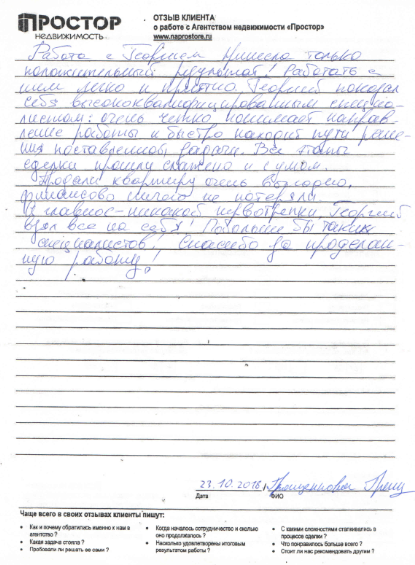 ПРОСТОР
НЕДВИЖИМОСТЬ
ОТЗЫВ КЛИЕНТА
о работе с Агентством недвижимости «Простор»
www.naprostore.ru
Работа с Георгием принесла только
положительный результат! Работать с
ним легко и приятно. Георгий показал
себя высококвалифицированным специа-
листом: очень четко понимает направ-
ление работы и быстро находит пути реше-
ния поставленной задачи. Все этапы
сделки прошли слаженно и с умом.
Продали квартиру очень выгодно,
финансово ничего не потеряли
И главное - никакой нервотрепки, Георгий
взял все на себя! Побольше бы таких
специалистов. Спасибо за проделан-
ную работу!
23.10.2018
Дата
ФИО
Чаще всего в своих отзывах клиенты пишут:
• Как и почему обратились именно к нам в агентство?
• Какая задача стояла?
• Пробовали ли решать ее сами?
• Когда началось сотрудничество и сколько оно продолжалось?
• Насколько удовлетворены итоговым результатом работы?
• С какими сложностями сталкивались в процессе сделки?
• Что понравилось больше всего?
• Стоит ли нас рекомендовать другим?